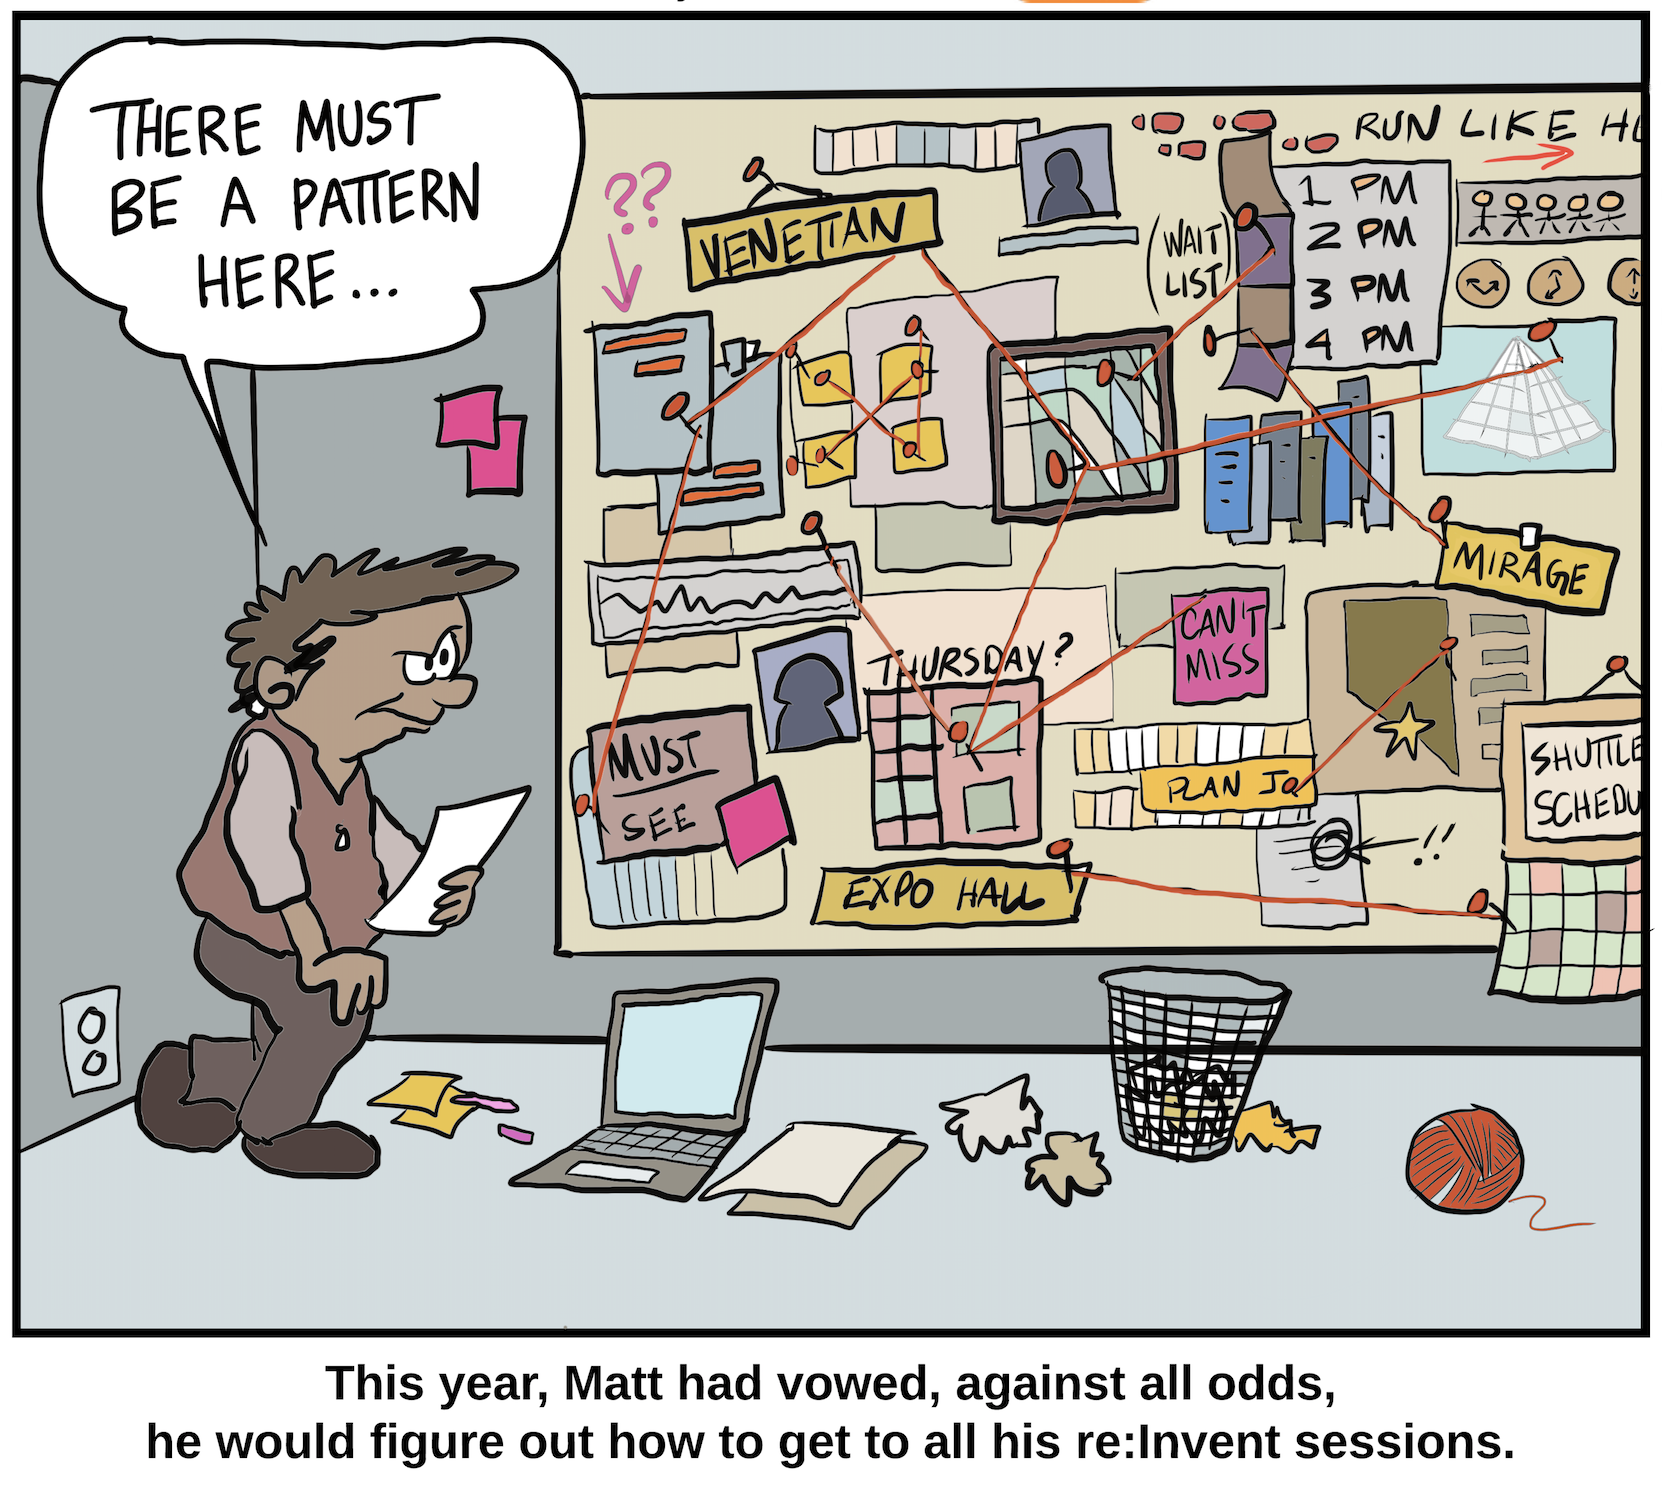 THERE MUST
BE A PATTERN
HERE...
RUN LIKE
??
VENETIAN
(WAIT
LIST)
1 PM
2 PM
3 PM
4 PM
MIRAGE
CAN'T
MISS
THURSDAY?
MUST
SEE
PLAN J
SHUTTLE
SCHEDU
!!
EXPO HALL
This year, Matt had vowed, against all odds,
he would figure out how to get to all his re:Invent sessions.